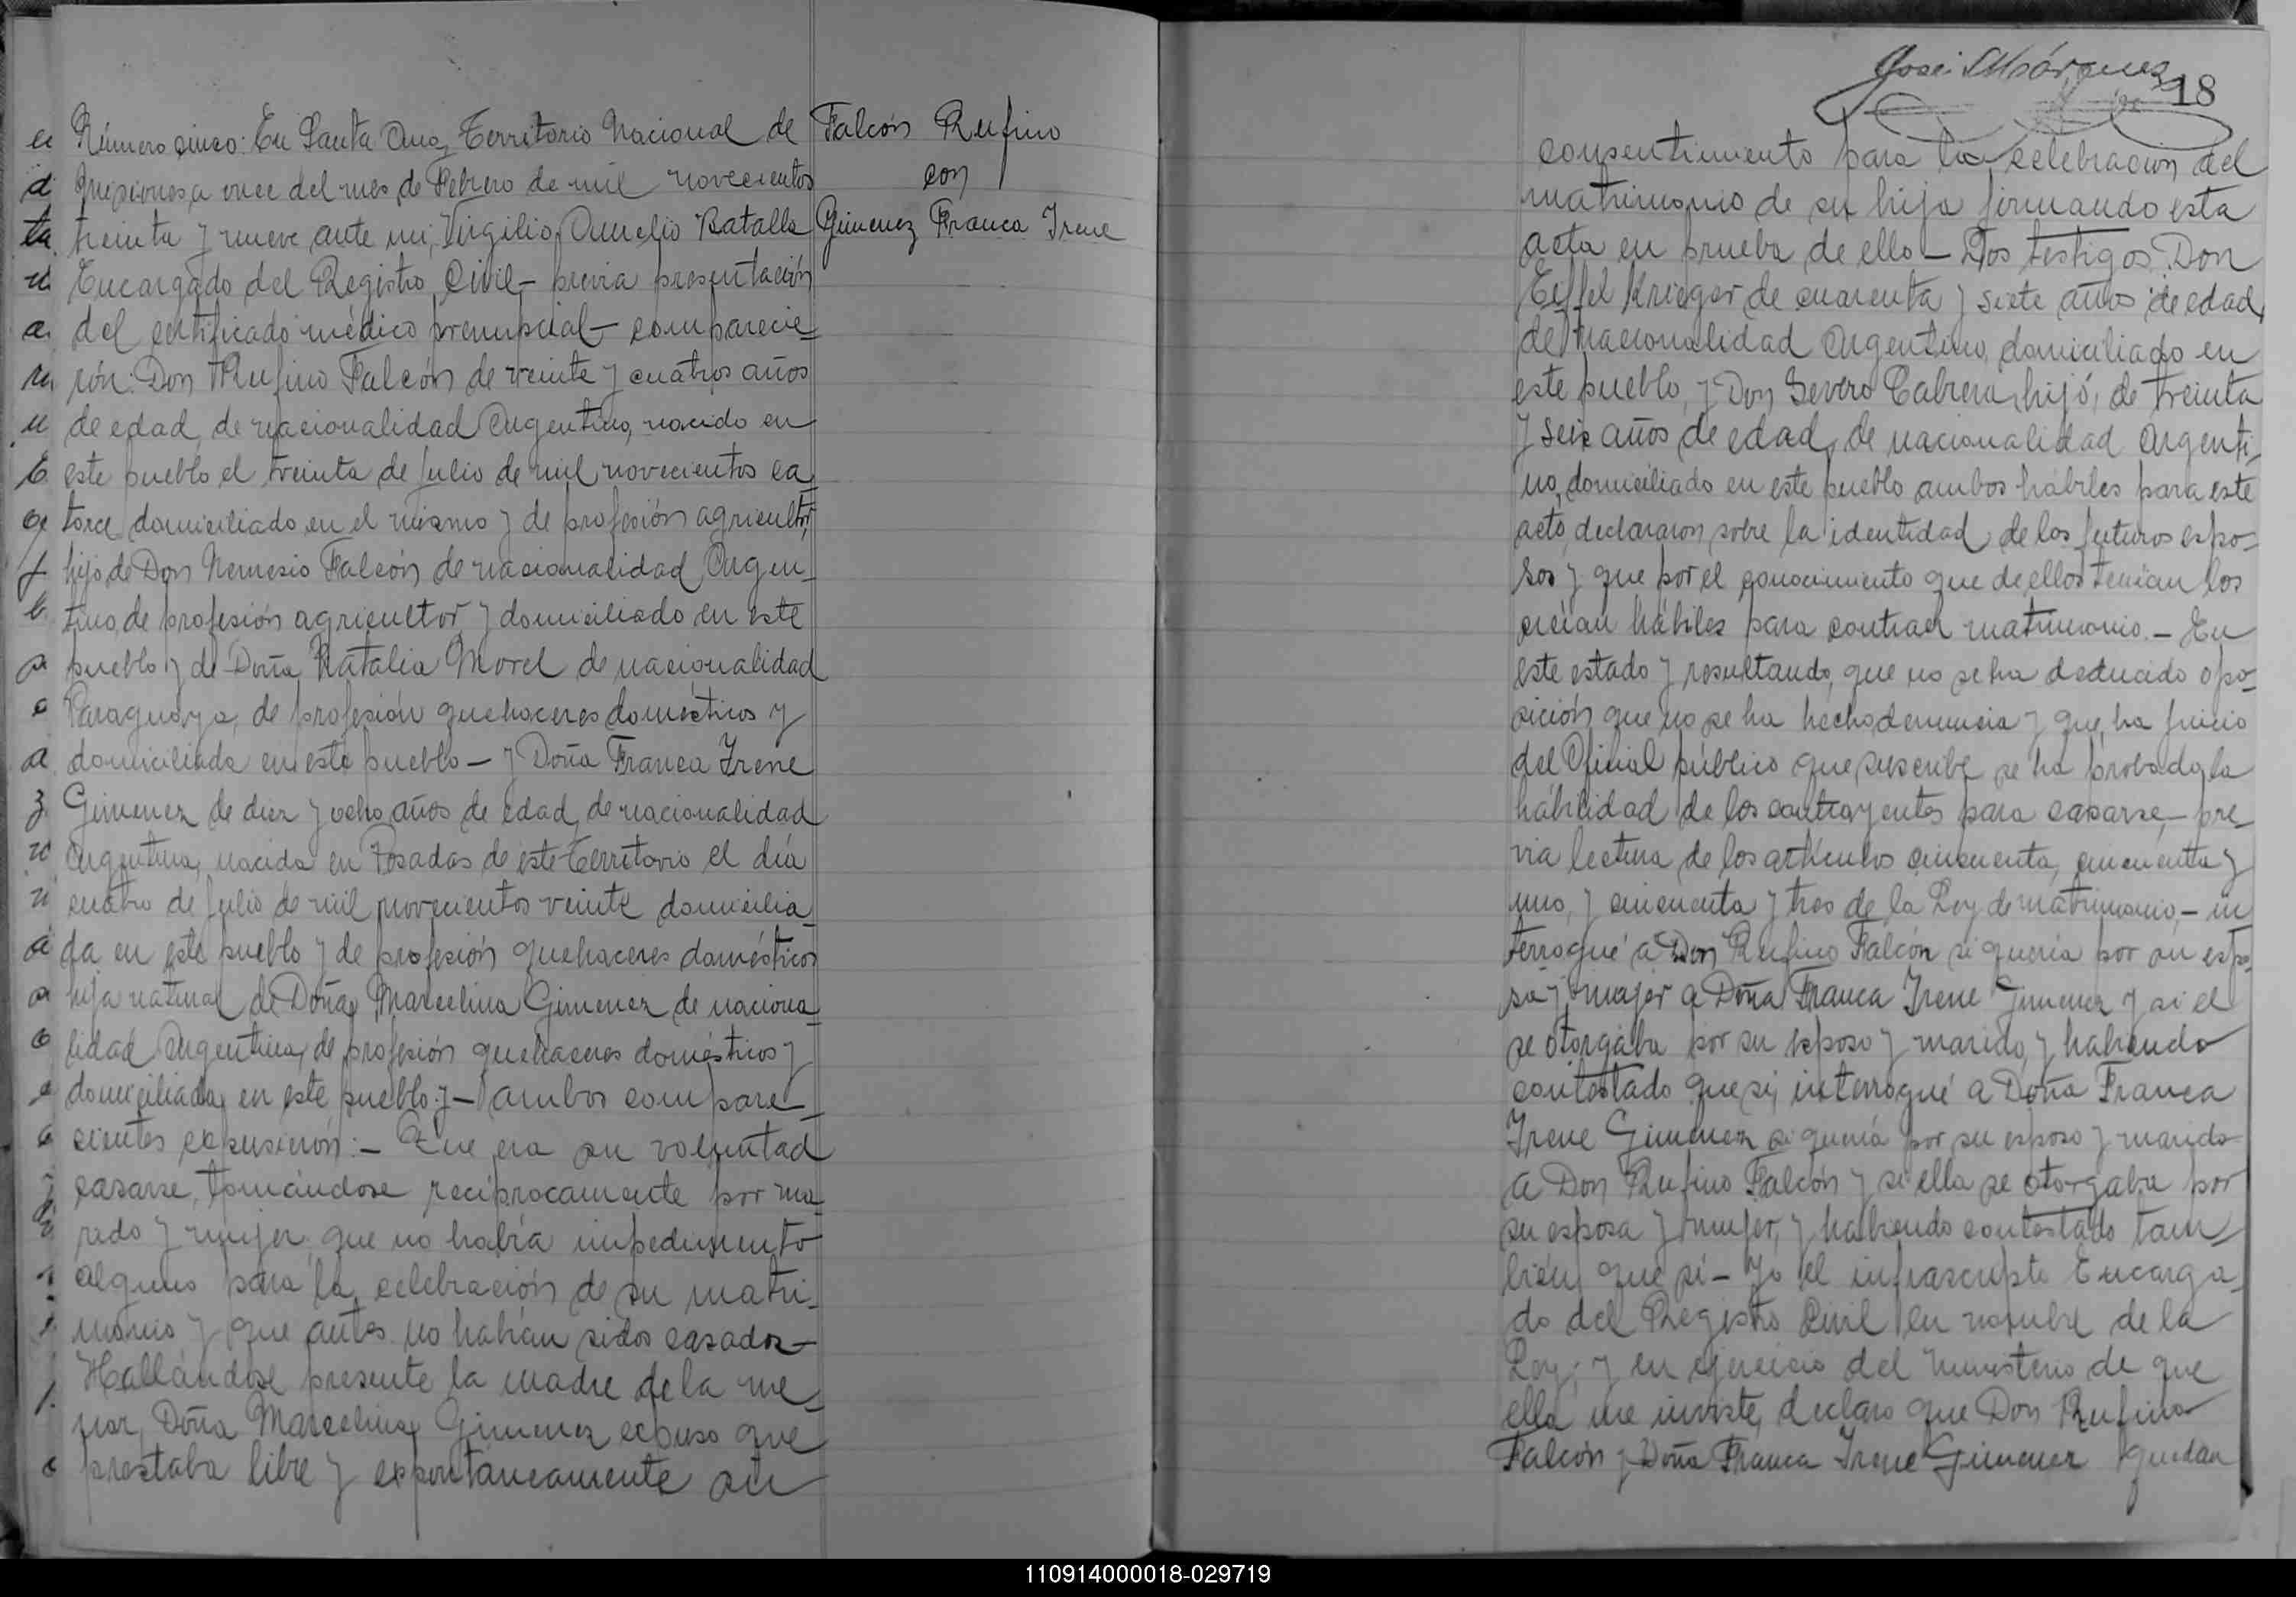 Número cinco: En Santa Ana, Territorio Nacional de
Misiones, a once del mes de Febrero de mil novecientos
treinta y nueve, ante mi, Virgilio Aurelio Batalla
Encargado del Registro Civil – previa presentación
del certificado médico prenupcial – comparecie-
rón: Don Rufino Falcón de veinte y cuatros años
de edad, de nacionalidad Argentino, nacido en
este pueblo el treinta de julio de mil novecientos ca-
torce, domiciliado en el mismo y de profesión agricultor,
hijo de Don Nemesio Falcón de nacionalidad Argen-
tino, de profesión agricultor y domiciliado en este
pueblo y de Doña Natalia Morel de nacionalidad
Paraguaya, de profesión quehaceres domésticos y
domiciliada en este pueblo – y Doña Franca Irene
Gimenez de diez y ocho años de edad, de nacionalidad
Argentina, nacida en Posadas de este territorio el día
cuatro de julio de mil novecientos veinte domicilia-
da en este pueblo y de profesión quehaceres domésticos
hija natural de Doña Marcelina Gimenez de naciona-
lidad Argentina, de profesión quehaceres domésticos y
domiciliada en este pueblo: y – ambos compare-
cientes expusierón: – Que era su voluntad
casarse, tomándose recíprocamente por ma-
rido y mujer, que no había impedimento
alguno para la celebración de su matri-
monio y que antes no habían sidos casados –
Hallándose presente la madre de la me-
nor, Doña Marcelina Gimenez expuso que
prestaba libre y expontáneamente su
Falcón Rufino
con
Gimenez Franca Irene
José Márquez
18
consentimiento para la celebración del
matrimonio de su hija firmando esta
acta en prueba de ello – Los testigos Don
Eiffel Krieger de cuarenta y siete años de edad,
de nacionalidad Argentino, domiciliado en
este pueblo, y Don Severo Cabrera, hijó, de treinta
y seis años de edad, de nacionalidad Argenti-
no, domiciliado en este pueblo ambos hábiles para este
acto, declararon sobre la identidad de los futuros espo-
sos y que por el conocimiento que de ellos tenían los
creían hábiles para contraer matrimonio. – En
este estado y resultando, que no se ha deducido opo-
sición que no se ha hecho denuncia y que, ha juicio
del Oficial público que suscribe se ha probado la
habilidad de los contrayentes para casarse, – pre-
via lectura de los artículos cincuenta, cincuenta y
uno, y cincuenta y tres de la Ley de matrimonio, – in
terrogué a Don Rufino Falcón si quería por su espo-
sa y mujer a Doña Franca Irene Gimenez y si el
se otorgaba por su esposo y marido, y habiendo
contestado que si, interrogué a Doña Franca
Irene Gimenez si quería por su esposo y marido
a Don Rufino Falcón y si ella se otorgaba por
su esposa y mujer, y habiendo contestado tam-
bién que si – Yo el infrascripto Encarga-
do del Registro Civil en nombre de la
Ley; y en ejercicio del ministerio de que
ella me inviste, declaro que Don Rufino
Falcón y Doña Franca Irene Gimenez quedan
110914000018-029719